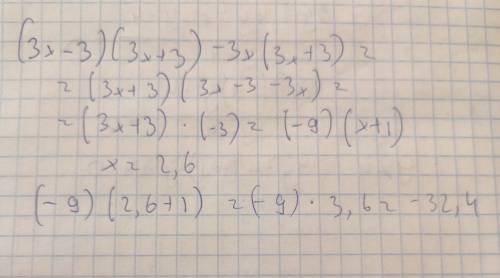 (3x-3)(3x+3) -3x(3x+3) =
= (3x+3)(3x-3-3x) =
= (3x+3) · (-3) = (-9)(x+1)
x = 2,6
(-9)(2,6+1) = (-9) · 3,6 = -32,4